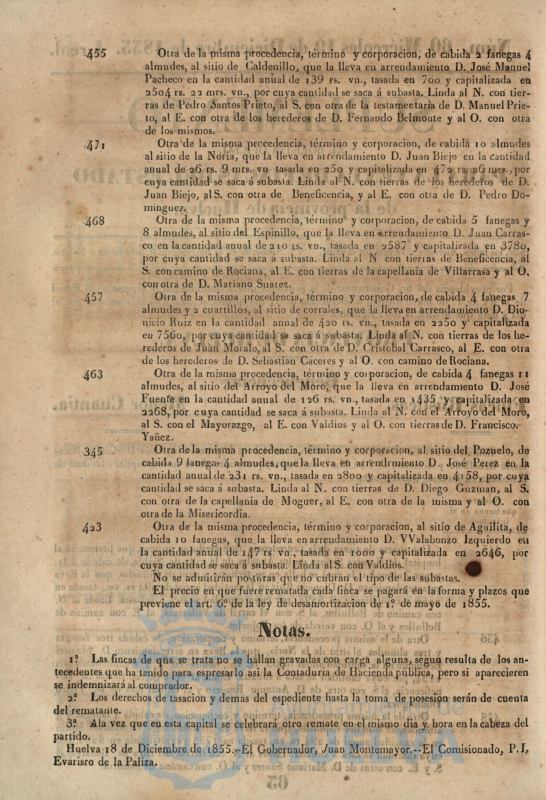 455 Otra de la misma procedencia, término y corporacion, de cabida 2 fanegas 4
almudes, al sitio de Caldenillo, que la lleva en arrendamiento D. José Manuel
Pacheco en la cantidad anual de 139 rs. vn., tasada en 700 y capitalizada en
2504 rs. 22 mrs. vn., por cuya cantidad se saca á subasta. Linda al N. con tier-
ras de Pedro Santos Prieto, al S. con otra de la testamentaria de D. Manuel Prie-
to, al E. con otra de los herederos de D. Fernando Belmonte y al O. con otra
de los mismos.
471 Otra de la misma procedencia, término y corporacion, de cabida 10 almudes
al sitio de la Noria, que lleva en arrendamiento D. Juan Biejo en la cantidad
anual de 26 rs. 9 mrs. vn tasada en 250 y capitalizada en 472 rs 26 mrs., por
cuya cantidad se saca á subasta. Linda al N. con tierras de los herederos de D.
Juan Biejo, al S. con otra de Beneficencia, y al E. con otra de D. Pedro Do-
minguez.
468 Otra de la misma procedencia, término y corporacion, de cabida 5 fanegas y
8 almudes, al sitio del Espinillo, que la lleva en arrendamiento D. Juan Carras-
co en la cantidad anual de 210 rs. vn., tasada en 2587 y capitalizada en 3780,
por cuya cantidad se saca á subasta. Linda al N con tierras de Beneficencia, al
S. con camino de Rociana, al E. con tierras de la capellanía de Villarrasa y al O,
con otra de D. Mariano Suarez.
457 Otra de la misma procedencia, término y corporacion, de cabida 4 fanegas 7
almudes y 2 cuartillos, al sitio de corrales, que la lleva en arrendamiento D. Dio-
nicio Ruiz en la cantidad anual de 420 rs. vn., tasada en 2250 y capitalizada
en 7560, por cuya cantidad se saca á subasta. Linda al N. con tierras de los he-
rederos de Juan Moralo, al S. con otra de D. Cristobal Carrasco, al E. con otra
de los herederos de D. Sebastian Caceres y al O. con camino de Rociana.
463 Otra de la misma procedencia, término y corporacion, de cabida 4 fanegas 11
almudes, al sitio del Arroyo del Moro, que la lleva en arrendamiento D. José
Fuente en la cantidad anual de 126 rs. vn., tasada en 1435 y capitalizada en
2268, por cuya cantidad se saca á subasta. Linda al N. con el Arroyo del Moro,
al S. con el Mayorazgo, al E. con Valdios y al O. con tierras de D. Francisco.
Yañez.
345 Otra de la misma procedencia, término y corporacion, al sitio del Pozuelo, de
cabida 9 fanegas 4 almudes, que la lleva en arrendrmiento D. José Perez en la
cantidad anual de 231 rs. vn., tasada en 2800 y capitalizada en 4158, por cuya
cantidad se saca á subasta. Linda al N. con tierras de D. Diego Guzman, al S.
con otra de la capellania de Moguer, al E. con otra de la misma y al O. con
otra de la Misericordia.
423 Otra de la misma procedencia, término y corporacion, al sitio de Aguilita, de
cabida 10 fanegas, que la lleva en arrendamiento D. VValabonzo Izquierdo en
la cantidad anual de 147 rs. vn., tasada en 1000 y capitalizada en 2646, por
cuya cantidad se saca á subasta. Linda al S. con Valdios.
No se admitirán posturas que no cubran el tipo de las subastas.
El precio en que fuere rematada cada finca se pagará en la forma y plazos que
previene el art. 6.º de la ley de desamortizacion de 1.º de mayo de 1855.
Notas.
1.ª Las fincas de que se trata no se hallan gravadas con carga alguna, segun resulta de los an-
tecedentes que ha tenido para espresarlo asi la Contaduría de Hacienda pública, pero si aparecieren
se indemnizará al comprador.
2.ª Los derechos de tasacion y demas del espediente hasta la toma de posesion serán de cuenta
del rematante.
3.ª A la vez que en esta capital se celebrará otro remate en el mismo dia y hora en la cabeza del
partido.
Huelva 18 de Diciembre de 1855.--El Gobernador, Juan Montemayor.--El Comisionado, P. I,
Evarisro de la Paliza.